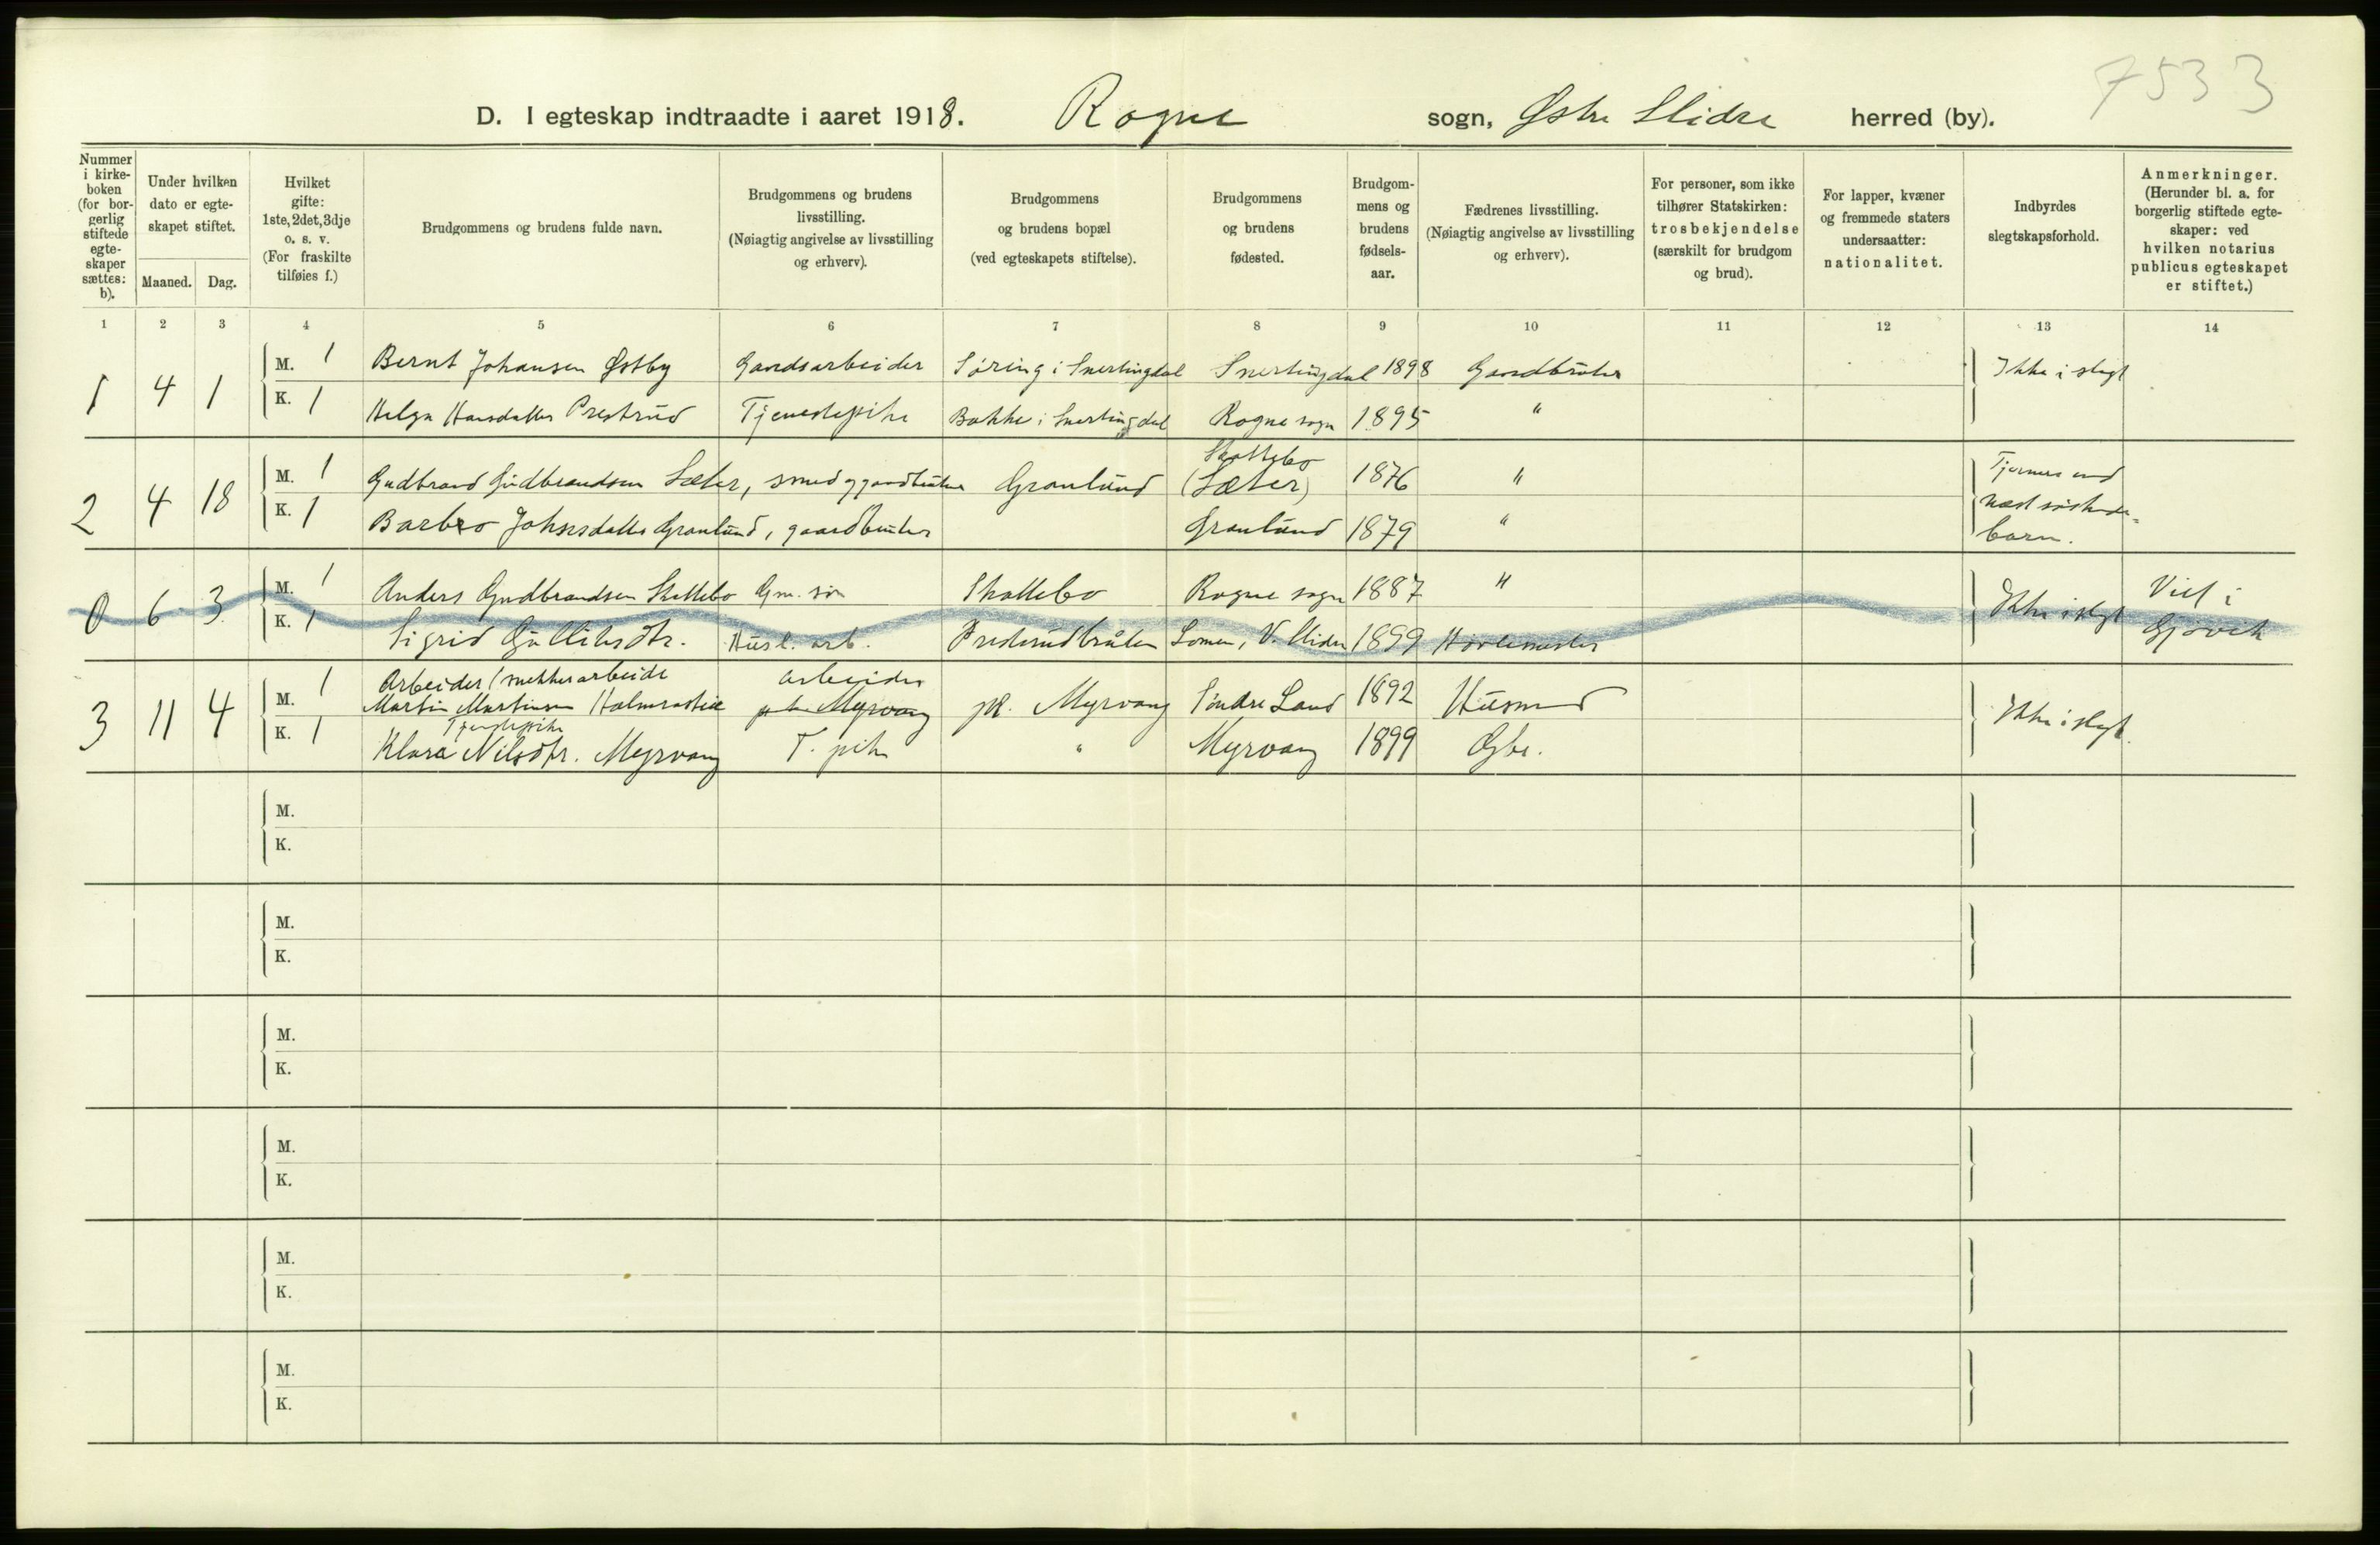 7533
D. I egteskap indtraadte i aaret 1918. Rogne sogn, Østre Slidre herred (by).
Nummer i kirke-boken (for bor-gerlig stiftede egte-skaper sættes: b).
Under hvilken dato er egte-skapet stiftet.
Maaned. Dag.
Hvilket gifte: 1ste, 2det, 3dje o. s. v. (For fraskilte tilføies f.)
Brudgommens og brudens fulde navn.
Brudgommens og brudens livsstilling. (Nøiagtig angivelse av livsstilling og erhverv).
Brudgommens og brudens bopæl (ved egteskapets stiftelse).
Brudgommens og brudens fødested.
Brudgom-mens og brudens fødsels-aar.
Fædrenes livsstilling. (Nøiagtig angivelse av livsstilling og erhverv).
For personer, som ikke tilhører Statskirken: trosbekjendelse (særskilt for brudgom og brud).
For lapper, kvæner og fremmede staters undersaatter: nationalitet.
Indbyrdes slegtskapsforhold.
Anmerkninger. (Herunder bl. a. for borgerlig stiftede egte-skaper: ved hvilken notarius publicus egteskapet er stiftet.)
1 2 3 4 5 6 7 8 9 10 11 12 13 14
1 4 1 M. 1 Bernt Johansen Østby Gaardsarbeider Søring i Snertingdal Snertingdal 1898 Gaardbruker Ikke i slegt
K. 1 Helga Hansdatter Prestrud Tjenestepike Bakke i Snertingdal Rogne sogn 1895 "
Skattebo
2 4 18 M. 1 Gudbrand Gudbrandsen Sæter, smed og gaardbruker Granlund (Sæter) 1876 " Tjermen
K. 1 Barbro Johnsdatter Granlund, gaardbruker Granlund 1879 " næstsøskende-
barn.
0 6 3 M. 1 Anders Gudbrandsen Skattebo Gm. søn Skattebo Rogne sogn 1887 " Ikke i slegt Viet i
K. 1 Sigrid Gulliksdtr. Husl. arb. Presterudbråten Lomen, V. Slidre 1899 Gjøvik
Arbeider snekkerarbeide arbeider
3 11 4 M. 1 Martin Martinsen Myrvang pl. Myrvang Søndre Land 1892 Husmand Ikke i slegt.
Tjenestepike
K. 1 Klara Nilsdtr. Myrvang T. pike " Myrvang 1899 Gbr.
M.
K.
M.
K.
M.
K.
M.
K.
M.
K.
M.
K.